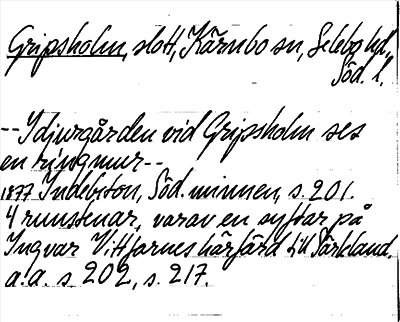 Gripsholm, slott, Kärnbo sn, Selebo hd,
Söd. l.
-- I djurgården vid Gripsholm ses
en ringmur --
1877 Indebiton, Söd. minnen, s. 201.
4 runstenar, varav en syftar på
Ingvar Vittfarnes härfärd till Särkland.
a.a. s. 202, s. 217.